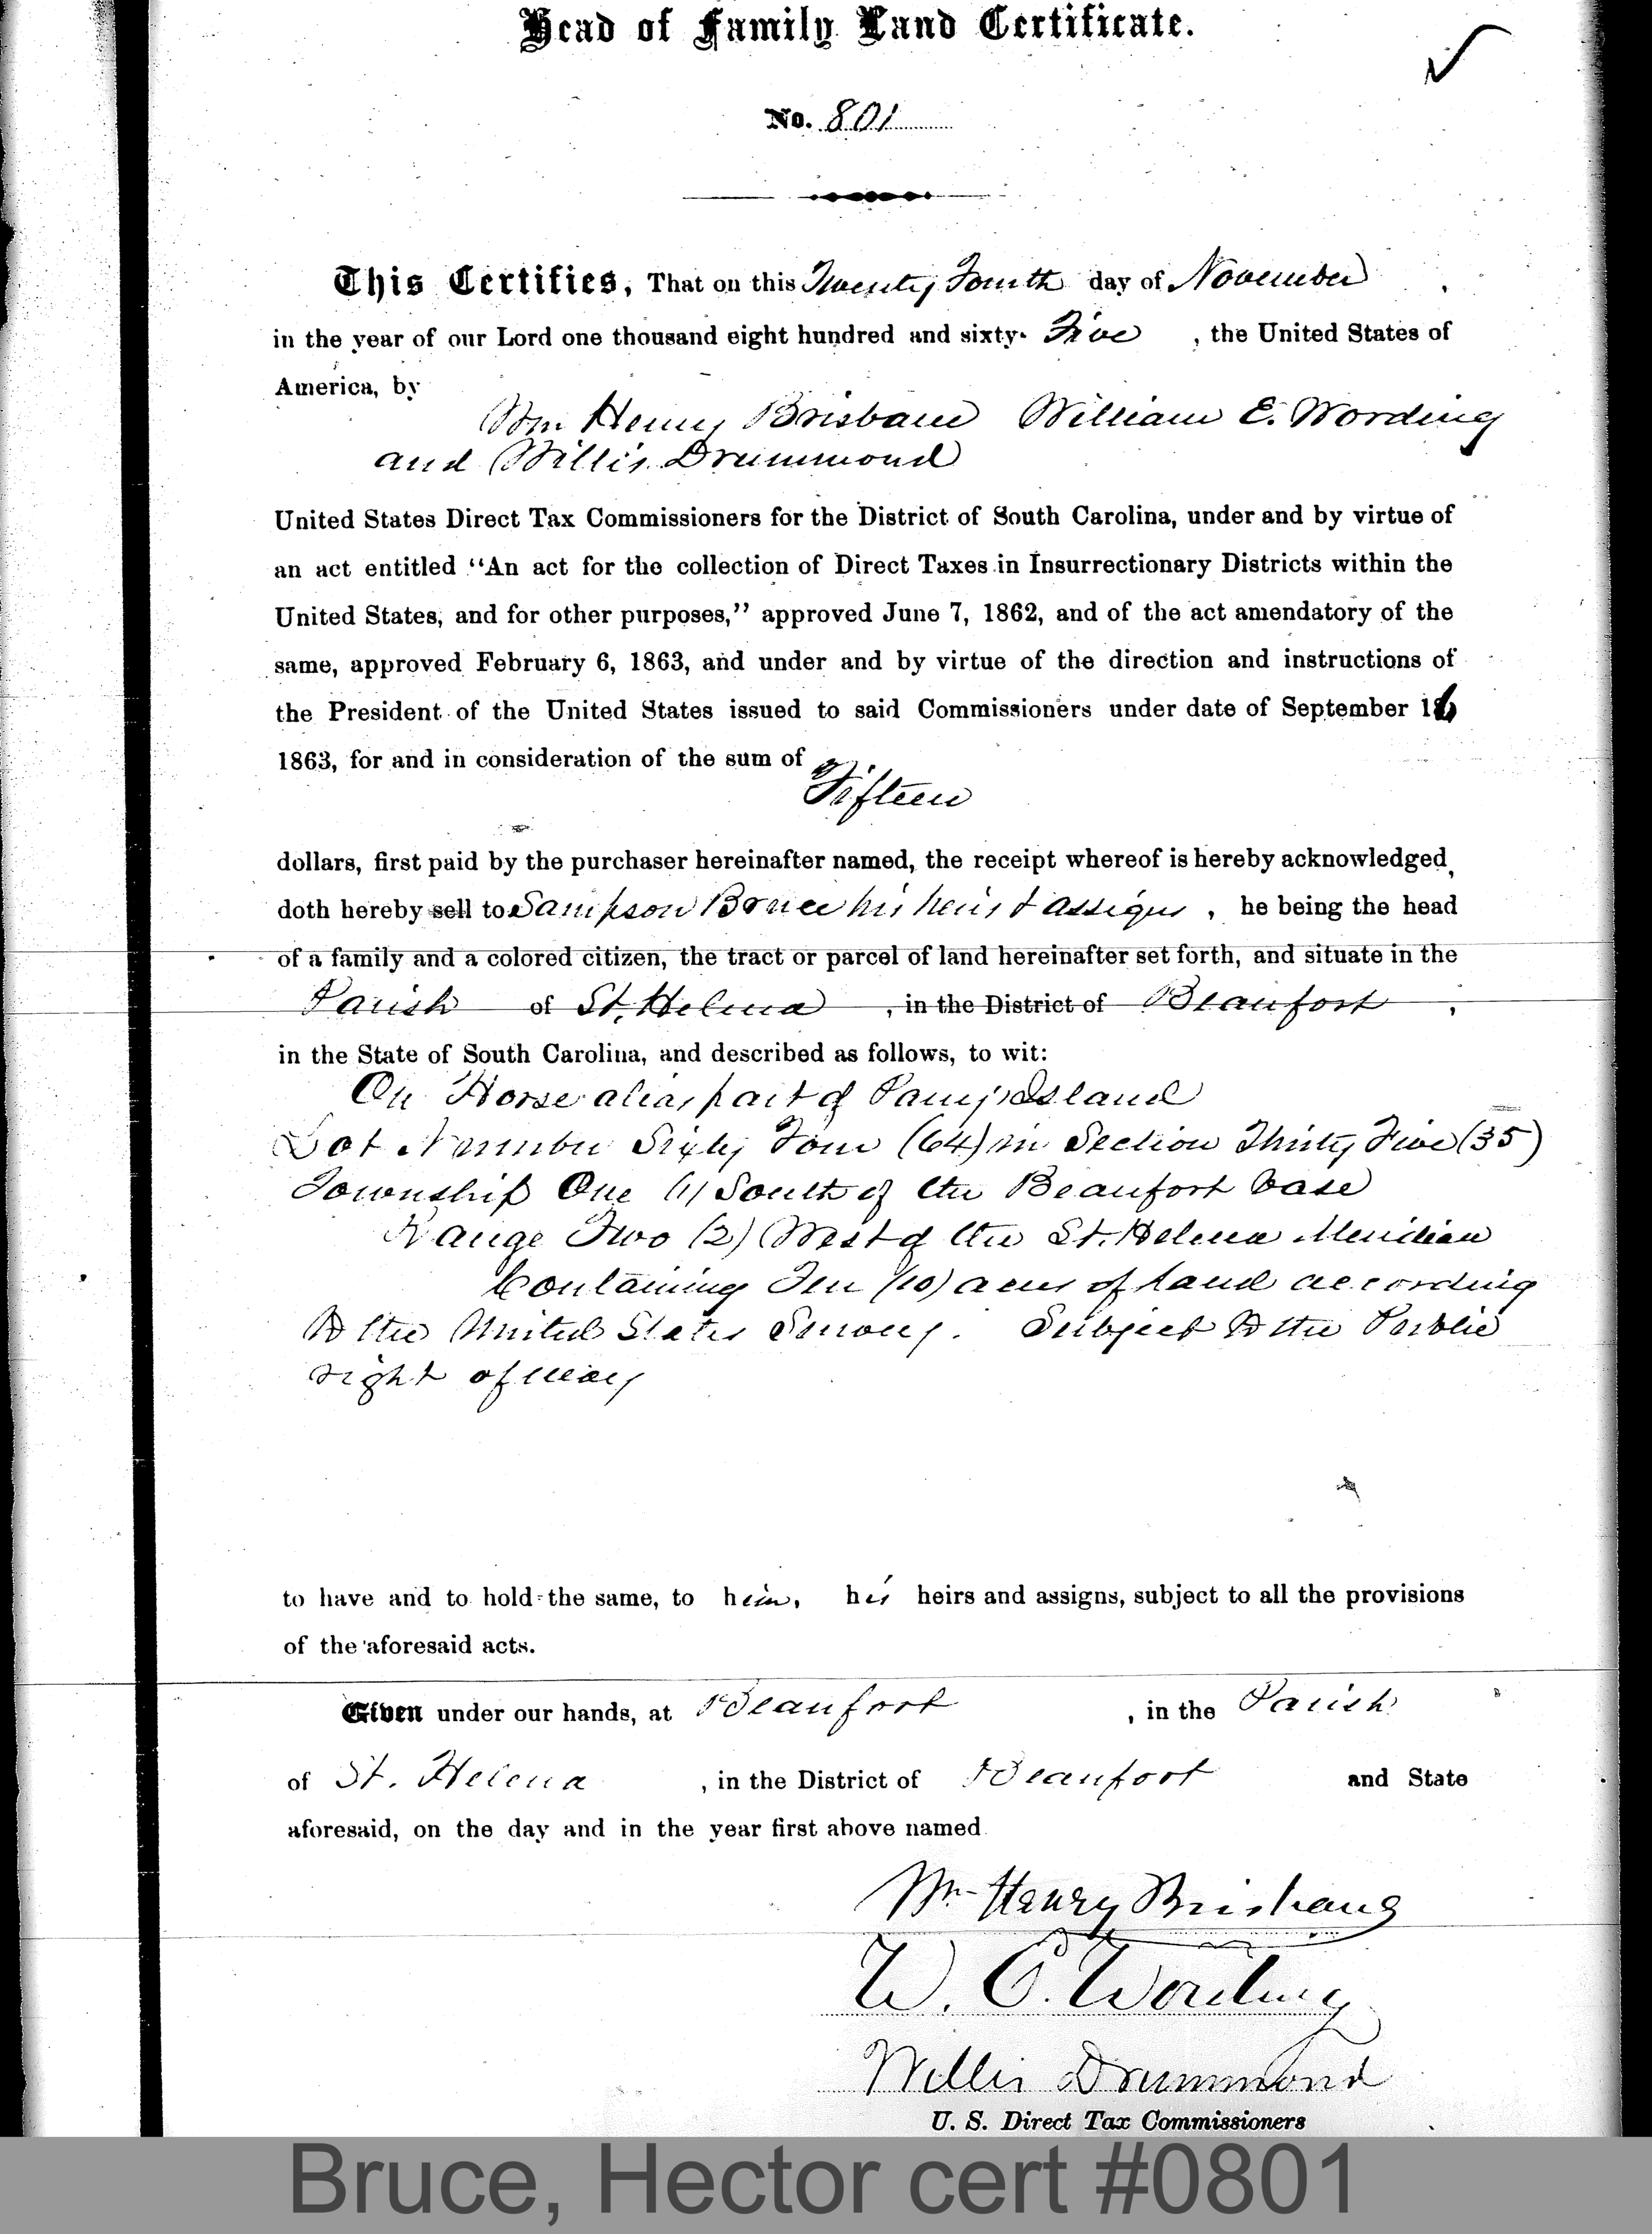 Head of Family Land Certificate.
No. 801
This Certifies, That on this Twenty Fourth day of November
in the year of our Lord one thousand eight hundred and sixty- Five , the United States of
America, by
Wm Henry Brisbane William E. Wording
and Willis Drummond
United States Direct Tax Commissioners for the District of South Carolina, under and by virtue of
an act entitled "An act for the collection of Direct Taxes in Insurrectionary Districts within the
United States, and for other purposes," approved June 7, 1862, and of the act amendatory of the
same, approved February 6, 1863, and under and by virtue of the direction and instructions of
the President of the United States issued to said Commissioners under date of September 16
1863, for and in consideration of the sum of
Fifteen
dollars, first paid by the purchaser hereinafter named, the receipt whereof is hereby acknowledged,
doth hereby sell to Sampson Bruce his heirs & assigns , he being the head
of a family and a colored citizen, the tract or parcel of land hereinafter set forth, and situate in the
Parish of St. Helena , in the District of Beaufort ,
in the State of South Carolina, and described as follows, to wit:
On Horse alias part of Island
Lot Number Sixty Four (64) in Section Thirty Five (35)
Township One (1) South of the Beaufort base
Range Two (2) West of the St. Helena Meridian
Containing Ten (10) acres of land according
to the United States Survey. Subject to the Public
right of way
to have and to hold the same, to him, his heirs and assigns, subject to all the provisions
of the aforesaid acts.
Given under our hands, at Beaufort , in the Parish
of St. Helena , in the District of Beaufort and State
aforesaid, on the day and in the year first above named
Wm Henry Brisbane
W. E. Wording
Willis Drummond
U. S. Direct Tax Commissioners
Bruce, Hector cert #0801